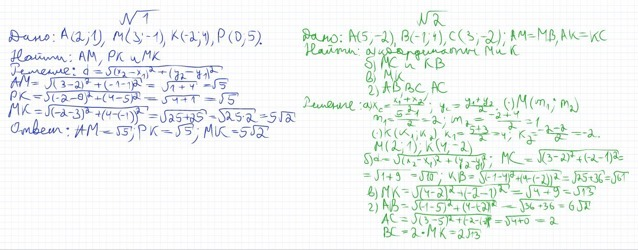 √1
Дано: A(2;1), M(3;-1), K(-2;4), P(0;5).
Найти: AM, PK и MK
Решение: d = √(x₂-x₁)² + (y₂-y₁)²
AM = √(3-2)² + (-1-1)² = √1+4 = √5
PK = √(-2-0)² + (4-5)² = √4+1 = √5
MK = √(-2-3)² + (4-(-1))² = √25+25 = √25·2 = 5√2
Ответ: AM = √5; PK = √5; MK = 5√2
√2
Дано: A(5,-2), B(-1;4), C(3;-2); AM=MB, AK=KC
Найти: а) координаты M и K
б) MC и KB
в) MK
г) AB BC AC
Решение: а) x₀ = x₁+x₂/2; y₀ = y₁+y₂/2, (·) M(m₁; m₂)
m₁ = 5-1/2 = 2; m₂ = -2+4/2 = 1
(·) K(K₁, K₂), K₁ = 5+3/2 = 4; K₂ = -2-2/2 = -2.
M(2; 1), K(4,-2)
б) d = √(x₂-x₁)² + (y₂-y₁)²; MC = √(3-2)² + (-2-1)² =
= √1+9 = √10; KB = √(-1-4)² + (4-(-2))² = √25+36 = √61
в) MK = √(4-2)² + (-2-1)² = √4+9 = √13
г) AB = √(-1-5)² + (4-(-2))² = √36+36 = 6√2
AC = √(3-5)² + (-2-(-2))² = √4+0 = 2
BC = 2·MK = 2√13